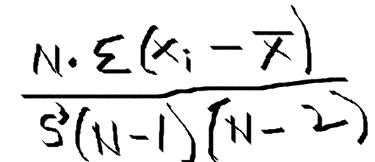 N · Σ(xᵢ − x̄)
S³(N−1)(N−2)